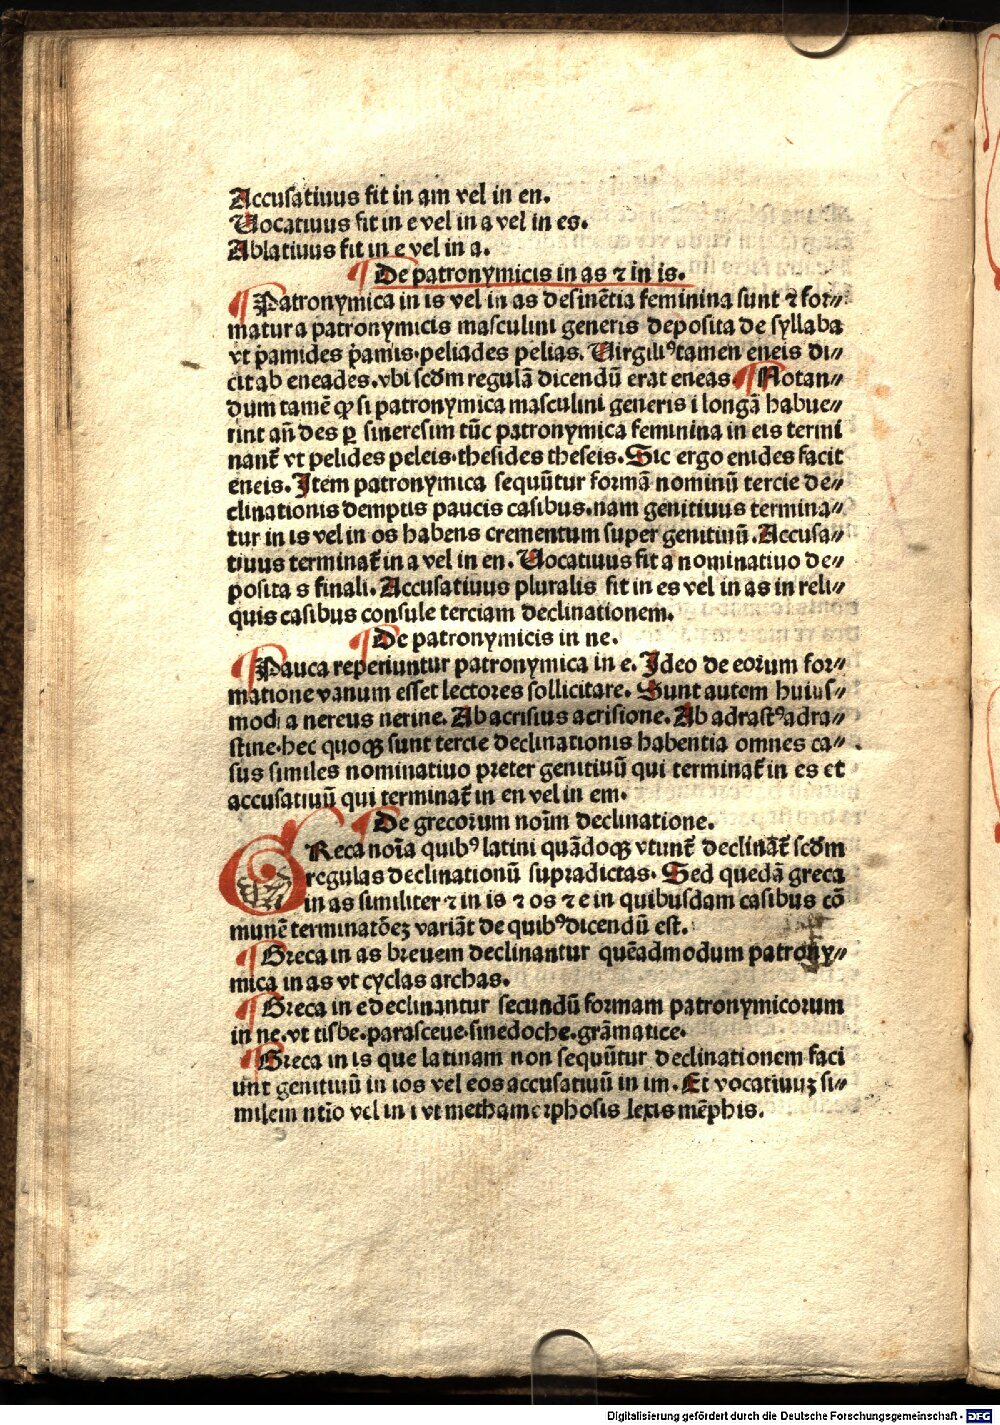 Accusatiuus fit in am vel in en.
Uocatiuus fit in e vel in a vel in es.
Ablatiuus fit in e vel in a.
¶ De patronymicis in as ⁊ in is.
¶ Patronymica in is vel in as desinētia feminina sunt ⁊ for⸗
mātur a patronymicis masculini generis deposita de syllaba
vt p̄amides p̄amis·peliades pelias. Uirgiliꝰ tamen eneis di⸗
cit ab eneades.vbi scd̄m regulā dicendū erat eneas. ¶ Notan⸗
dum tamē ꝙ si patronymica masculini generis i longā habue⸗
rint an̄ des ꝑ sineresim tūc patronymica feminina in eis termi
nant̄ vt pelides peleis·thesides theseis. Sic ergo enides facit
eneis. Item patronymica sequūtur formā nominū tercie de⸗
clinationis demptis paucis casibus.nam genitiuus termina⸗
tur in is vel in os habens crementum super genitiuū. Accusa⸗
tiuus terminat̄ in a vel in en. Uocatiuus fit a nominatiuo de⸗
posita s finali. Accusatiuus pluralis fit in es vel in as in reli⸗
quis casibus consule terciam declinationem.
¶ De patronymicis in ne.
¶ Pauca reperiuntur patronymica in e. Ideo de eorum for⸗
matione vanum esset lectores sollicitare. Sunt autem huius⸗
modi a nereus nerine. Ab acrisius acrisione. Ab adrastꝰ adra⸗
stine·hec quoqꝫ sunt tercie declinationis habentia omnes ca⸗
sus similes nominatiuo preter genitiuū qui terminat̄ in es et
accusatiuū qui terminat̄ in en vel in em.
¶ De grecorum noīm declinatione.
GReca noīa quibꝰ latini quādoqꝫ vtunt̄ declināt̄ scd̄m
regulas declinationū supradictas. Sed quedā greca
in as similiter ⁊ in is ⁊ os ⁊ e in quibusdam casibus cō
munē terminatōeꝫ variāt de quibꝰ dicendū est.
¶ Greca in as breuem declinantur quēadmodum patrony⸗
mica in as vt cyclas archas.
¶ Greca in e declinantur secundū formam patronymicorum
in ne.vt tisbe.parasceue·sinedoche.grāmatice.
¶ Greca in is que latinam non sequūtur declinationem faci
unt genitiuū in ios vel eos accusatiuū in im. Et vocatiuuꝫ si⸗
milem ntīo vel in i vt methamorphosis lexis mēphis.
Digitalisierung gefördert durch die Deutsche Forschungsgemeinschaft - DFG